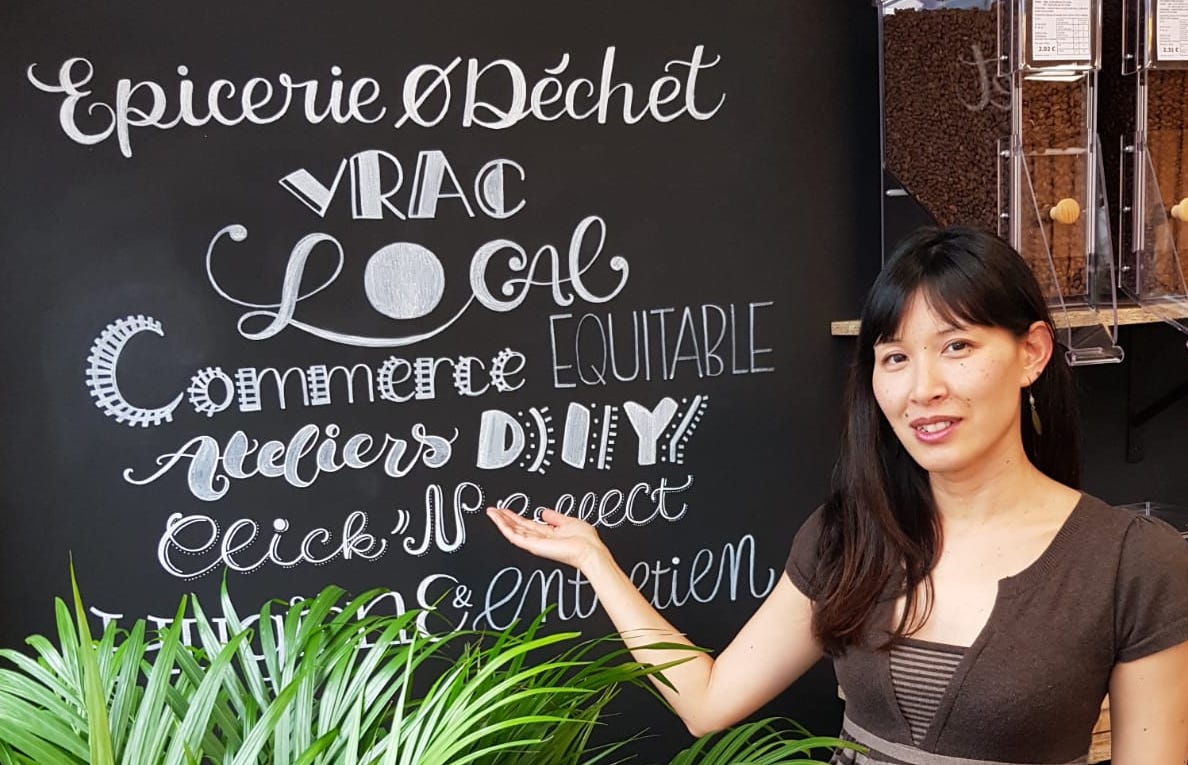 Epicerie Ø Déchet
VRAC
LOCAL
Commerce EQUITABLE
Ateliers DIY
Click'N Collect
Hygiène & entretien
2.02 €
2.31 €